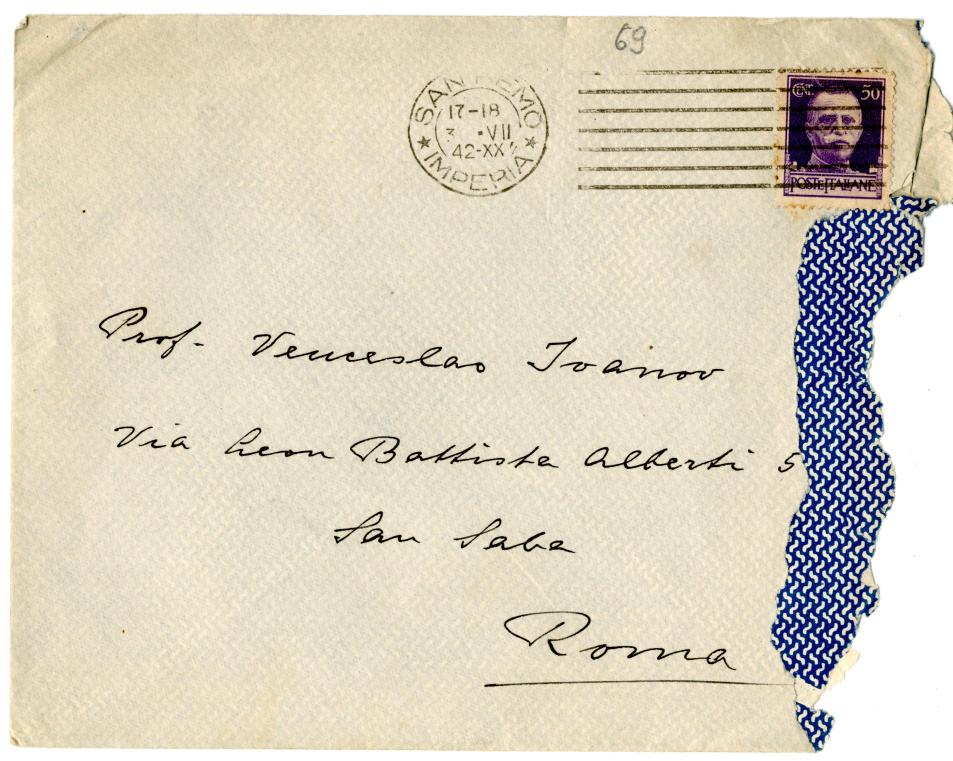 69
SAN REMO
17-18
3 . VII
42-XX
IMPERIA
CENT. 50
POSTE ITALIANE
Prof. Venceslao Ivanov
Via Leon Battista Alberti 5
San Saba
Roma